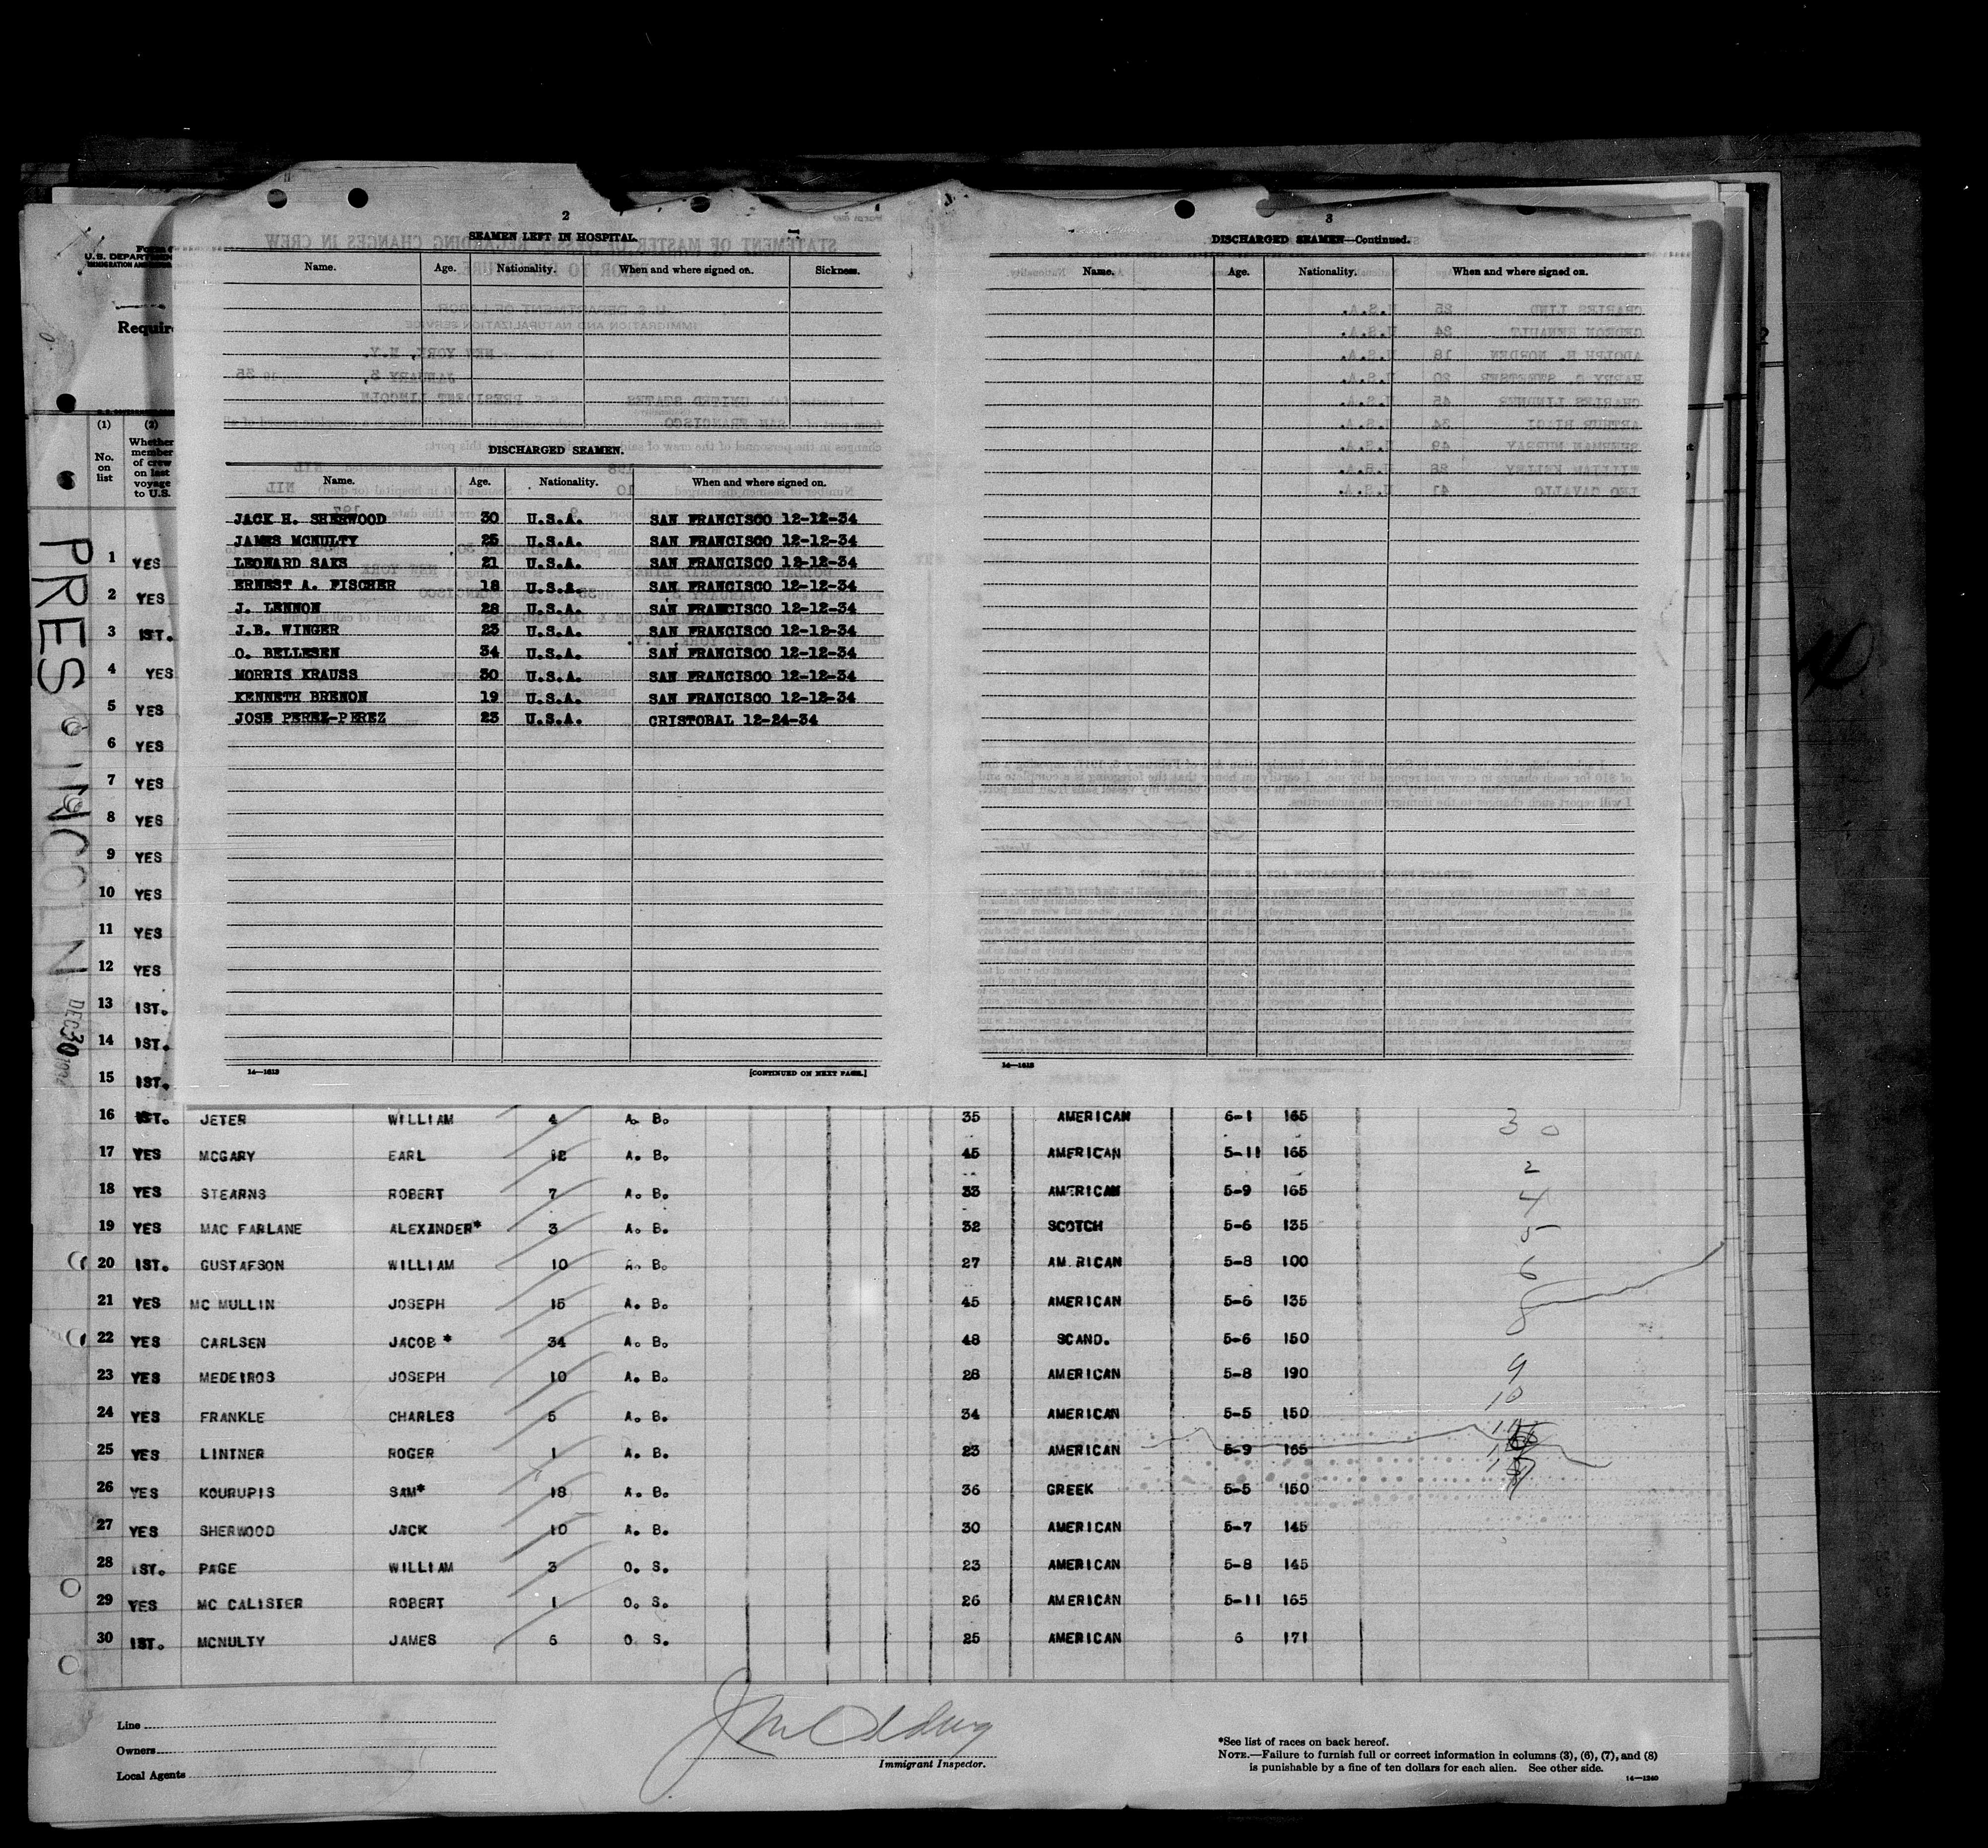 2
SEAMEN LEFT IN HOSPITAL
Name. Age. Nationality. When and where signed on. Sickness.
DISCHARGED SEAMEN.
Name. Age. Nationality. When and where signed on.
JACK H. SHERWOOD 30 U.S.A. SAN FRANCISCO 12-12-34
JAMES MCNULTY 25 U.S.A. SAN FRANCISCO 12-12-34
LEONARD SAKS 21 U.S.A. SAN FRANCISCO 12-12-34
ERNEST A. FISCHER 18 U.S.A. SAN FRANCISCO 12-12-34
J. LENNON 28 U.S.A. SAN FRANCISCO 12-12-34
J.B. WINGER 23 U.S.A. SAN FRANCISCO 12-12-34
O. BELLESEN 34 U.S.A. SAN FRANCISCO 12-12-34
MORRIS KRAUSS 30 U.S.A. SAN FRANCISCO 12-12-34
KENNETH BRENON 19 U.S.A. SAN FRANCISCO 12-12-34
JOSE PEREZ-PEREZ 23 U.S.A. CRISTOBAL 12-24-34
14—1613 [CONTINUED ON NEXT PAGE.]
3
DISCHARGED SEAMEN—Continued.
Name. Age. Nationality. When and where signed on.
14—1613
U.S. DEPARTMEN
Requir
(1) (2)
No. on list
Whether member of crew on last voyage to U.S.
PRES. LINCOLN
DEC 30
1 YES
2 YES
3 IST.
4 YES
5 YES
6 YES
7 YES
8 YES
9 YES
10 YES
11 YES
12 YES
13 IST.
14 IST.
15 IST.
16 IST. JETER WILLIAM 4 A. B. 35 AMERICAN 6-1 165 3 0
17 YES MCGARY EARL 12 A. B. 45 AMERICAN 5-11 165 2
18 YES STEARNS ROBERT 7 A. B. 33 AMERICAN 5-9 165 4
19 YES MAC FARLANE ALEXANDER* 3 A. B. 32 SCOTCH 5-6 135 5
20 IST. GUSTAFSON WILLIAM 10 A. B. 27 AM.RICAN 5-8 100 6
21 YES MC MULLIN JOSEPH 15 A. B. 45 AMERICAN 5-6 135 8
22 YES CARLSEN JACOB * 34 A. B. 48 SCAND. 5-6 150
23 YES MEDEIROS JOSEPH 10 A. B. 28 AMERICAN 5-8 190 9
24 YES FRANKLE CHARLES 5 A. B. 34 AMERICAN 5-5 150 10
25 YES LINTNER ROGER 1 A. B. 23 AMERICAN 5-9 165
26 YES KOURUPIS SAM* 18 A. B. 36 GREEK 5-5 150
27 YES SHERWOOD JACK 10 A. B. 30 AMERICAN 5-7 145
28 IST. PAGE WILLIAM 3 O. S. 23 AMERICAN 5-8 145
29 YES MC CALISTER ROBERT 1 O. S. 26 AMERICAN 5-11 165
30 IST. MCNULTY JAMES 6 O S. 25 AMERICAN 6 171
Line
Owners
Local Agents
Immigrant Inspector.
*See list of races on back hereof.
NOTE.—Failure to furnish full or correct information in columns (3), (6), (7), and (8)
is punishable by a fine of ten dollars for each alien. See other side.
14—1240